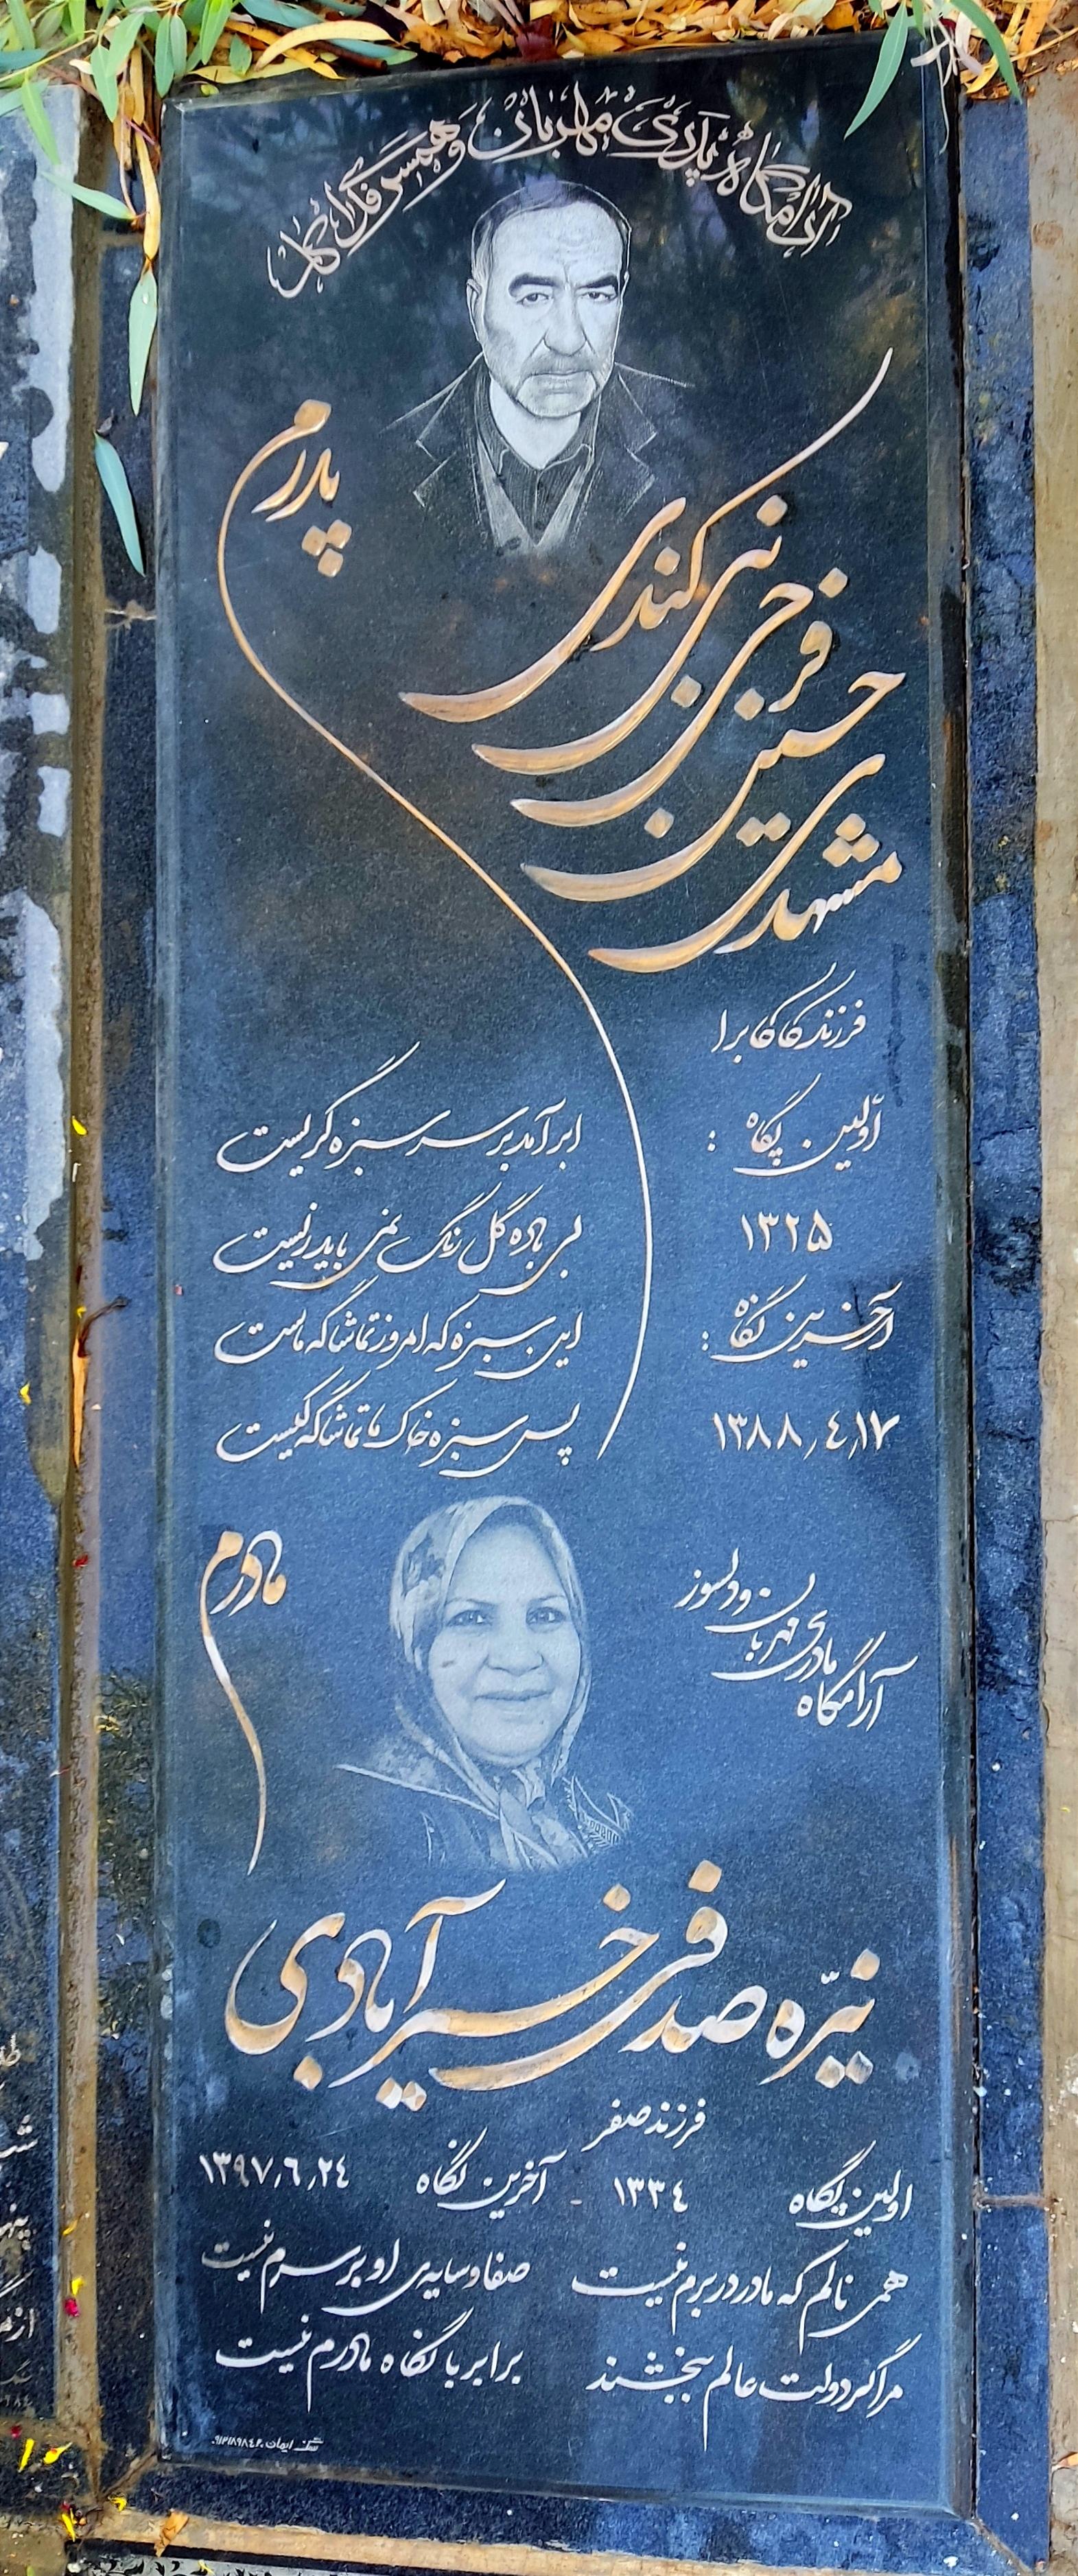 آرامگاه پدری مهربان و همسری فداکار
پدرم
مشهدی
حسین
فرجی
نی کندی
فرزند کاکابرا
اولین پگاه :
۱۳۲۵
آخرین نگاه :
۱۳۸۸٫۴٫۱۷
ابر آمد بر سر سبزه گریست
بی باده گل رنگ نمی باید زیست
این سبزه که امروز تماشاگه ماست
پس سبزه خاک ما تماشاگه کیست
مادرم
آرامگاه
مادری
مهربان
و دلسوز
نیّره صدفی خیرآبادی
فرزند صفر
اولین پگاه ۱۳۳۴ - آخرین نگاه ۱۳۹۷٫۶٫۲۴
همی نالم که مادر در برم نیست صفا و سایه‌ی او بر سرم نیست
مرا گر دولت عالم ببخشند برابر با نگاه مادرم نیست